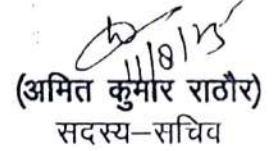 11/8/25
(अमित कुमार राठौर)
सदस्य–सचिव